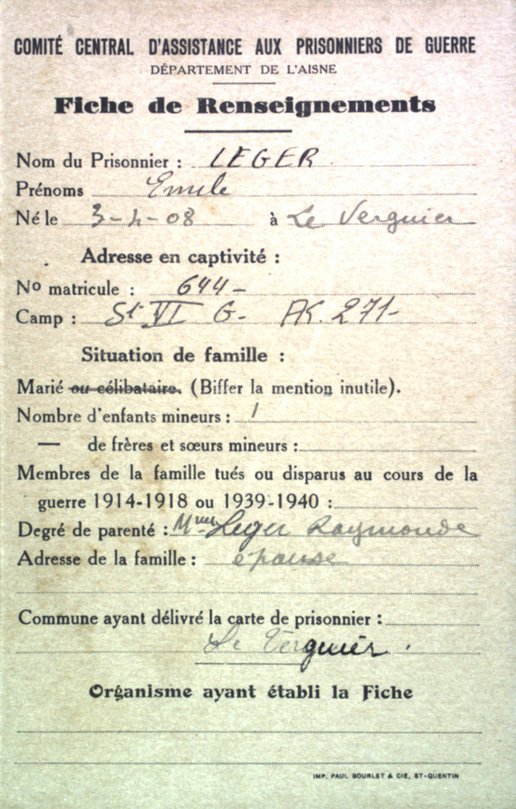 COMITÉ CENTRAL D'ASSISTANCE AUX PRISONNIERS DE GUERRE
DÉPARTEMENT DE L'AISNE
Fiche de Renseignements
Nom du Prisonnier : LEGER
Prénoms Emile
Né le 3-4-08 à Le Verguier
Adresse en captivité :
No matricule : 644-
Camp : St VI G- AK. 271-
Situation de famille :
Marié ou célibataire. (Biffer la mention inutile).
Nombre d'enfants mineurs : 1
— de frères et sœurs mineurs :
Membres de la famille tués ou disparus au cours de la
guerre 1914-1918 ou 1939-1940 :
Degré de parenté : Mme Leger Raymonde
Adresse de la famille : épouse
Commune ayant délivré la carte de prisonnier :
Le Verguier.
Organisme ayant établi la Fiche
IMP. PAUL BOURLET & CIE, ST-QUENTIN